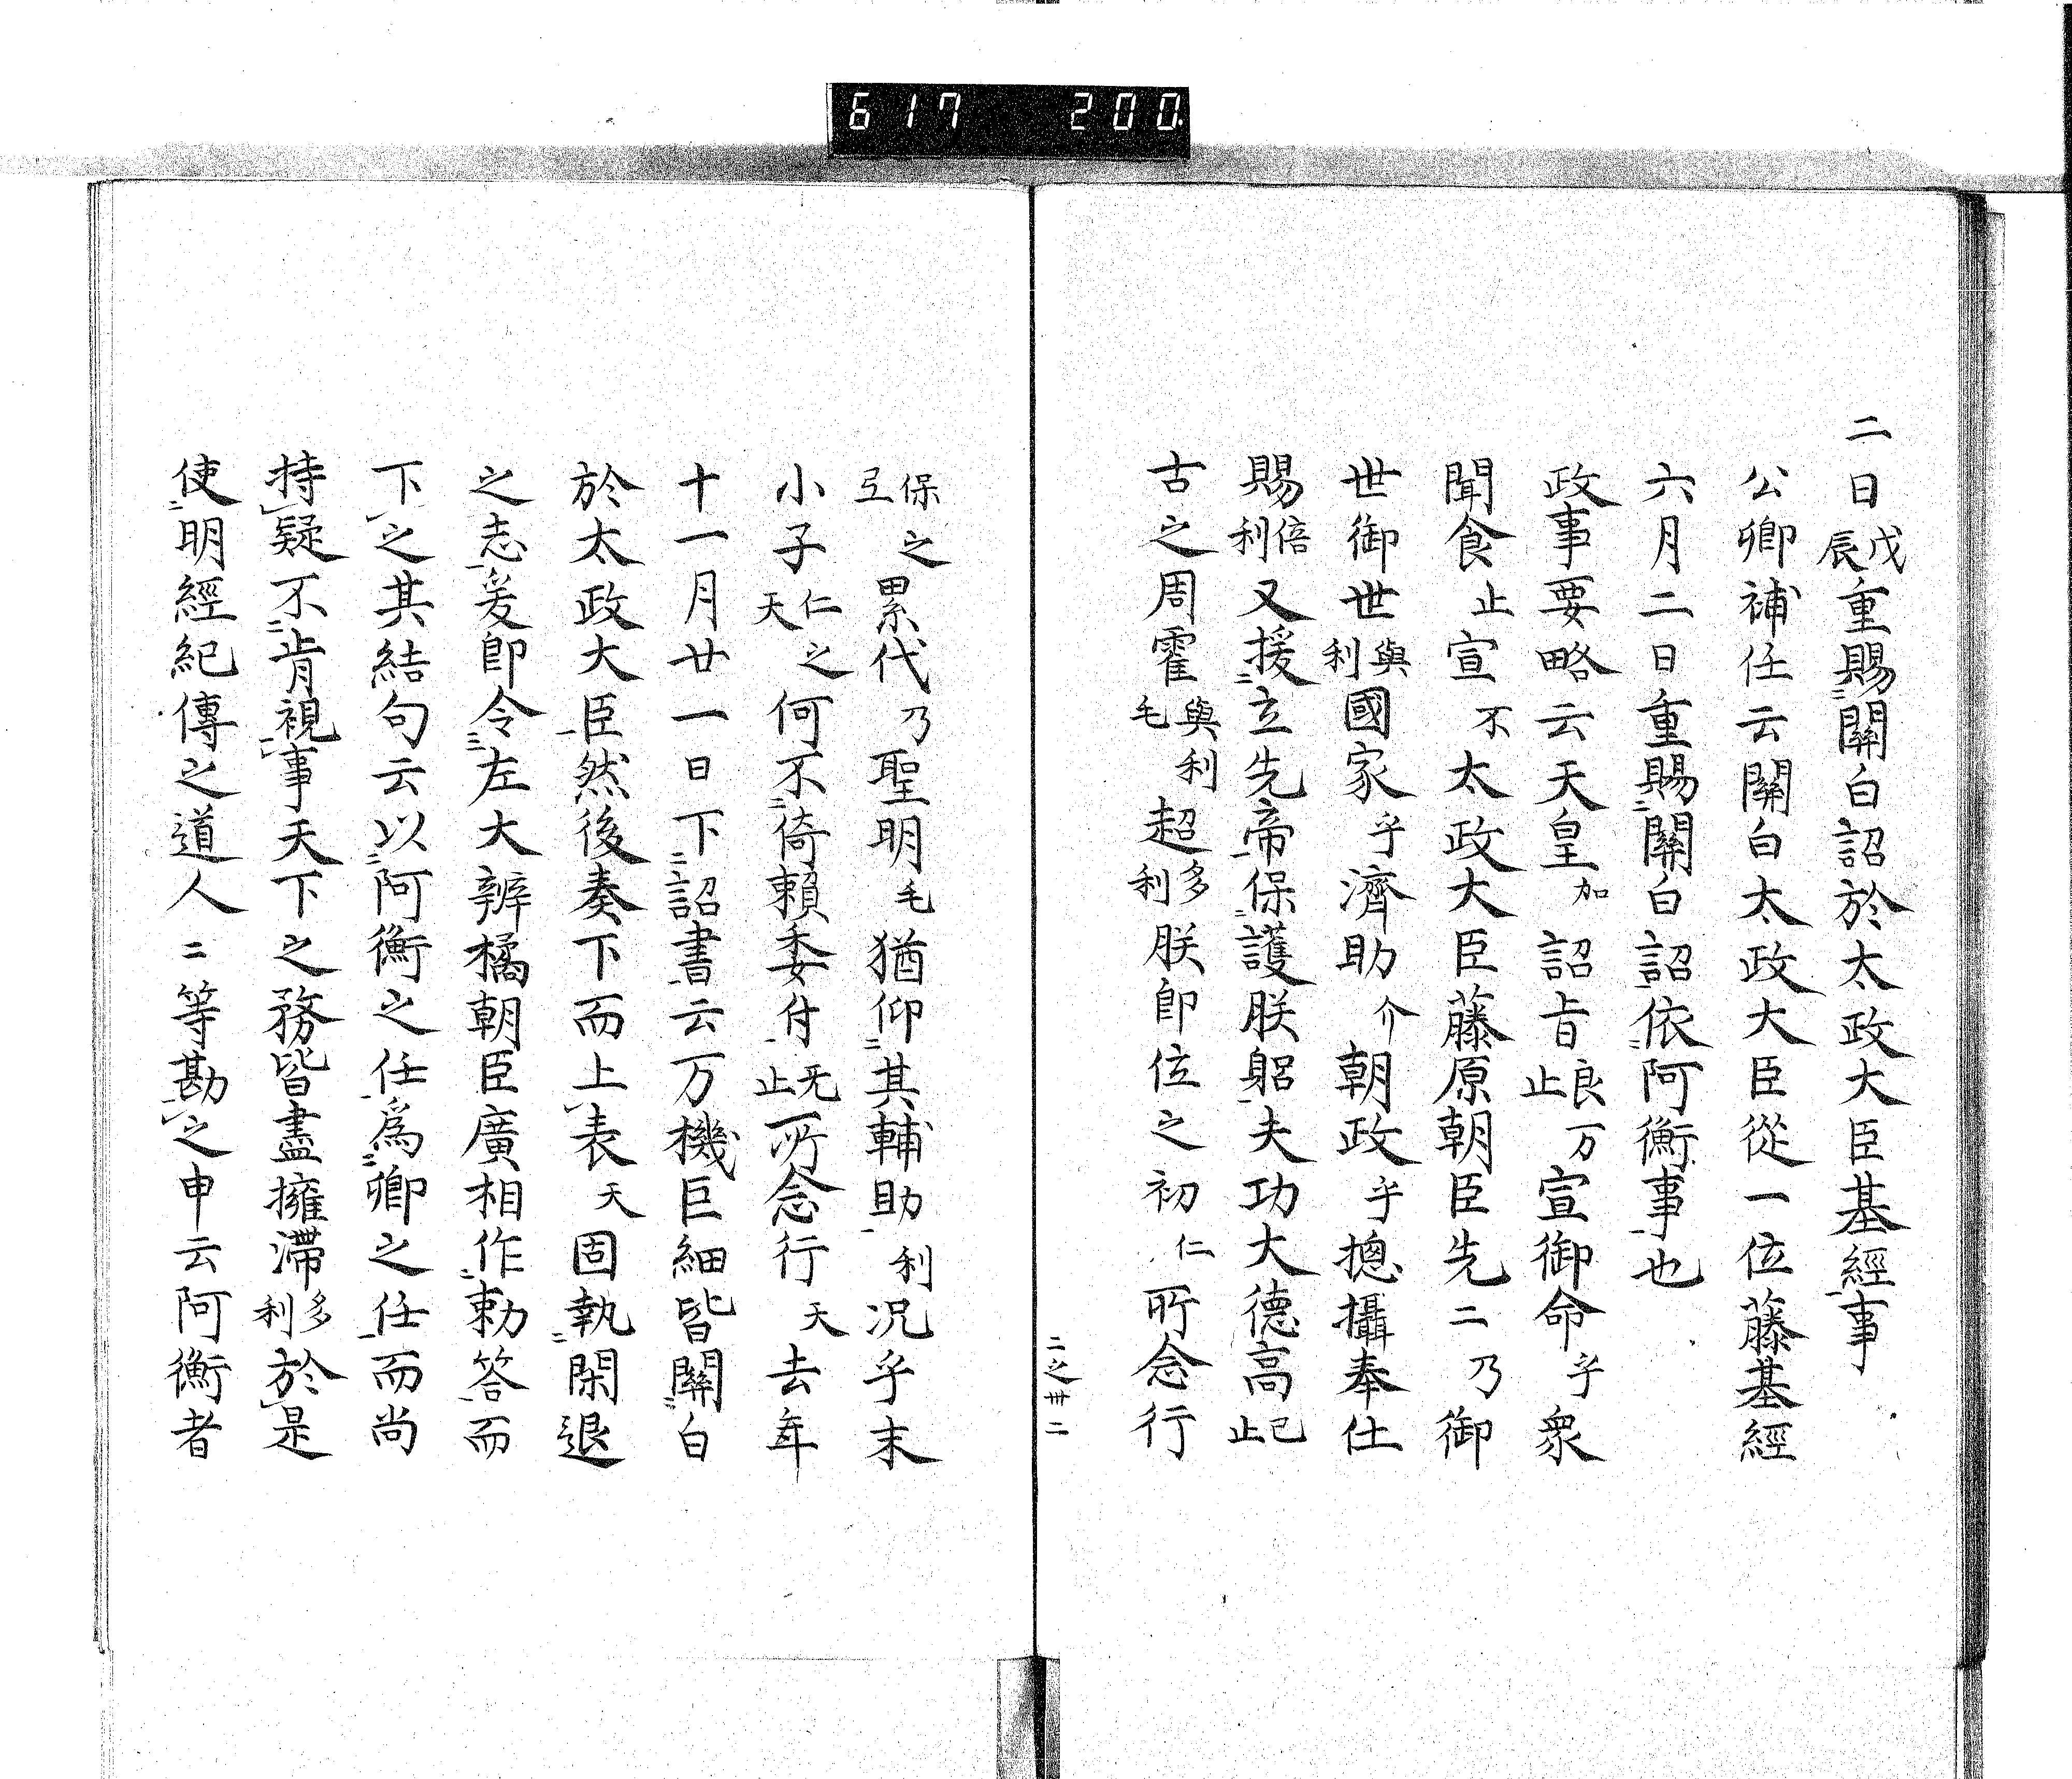 617 200.
二日戊辰重賜關白詔於太政大臣基經事
公卿補任云關白太政大臣從一位藤基經
六月二日重賜關白詔依阿衡事也
政事要略云天皇加詔旨良万止宣御命乎衆
聞食止宣不太政大臣藤原朝臣先二乃御
世御世與利國家乎濟助介朝政乎摠攝奉仕
賜倍利又援立先帝保護朕躬夫功大德高已止
古之周霍與利毛超多利朕卽位之初仁所念行
二之卅二
保之弖累代乃聖明毛猶仰其輔助利况乎末
小子仁之天何不倚賴委付无止所念行天去年
十一月廿一日下詔書云万機巨細皆關白
於太政大臣然後奏下而上表天固執閑退
之志爰卽令左大辨橘朝臣廣相作勅答而
下之其結句云以阿衡之任爲卿之任而尚
持疑不肯視事天下之務皆盡擁滯多利於是
使明經紀傳之道人二等勘之申云阿衡者